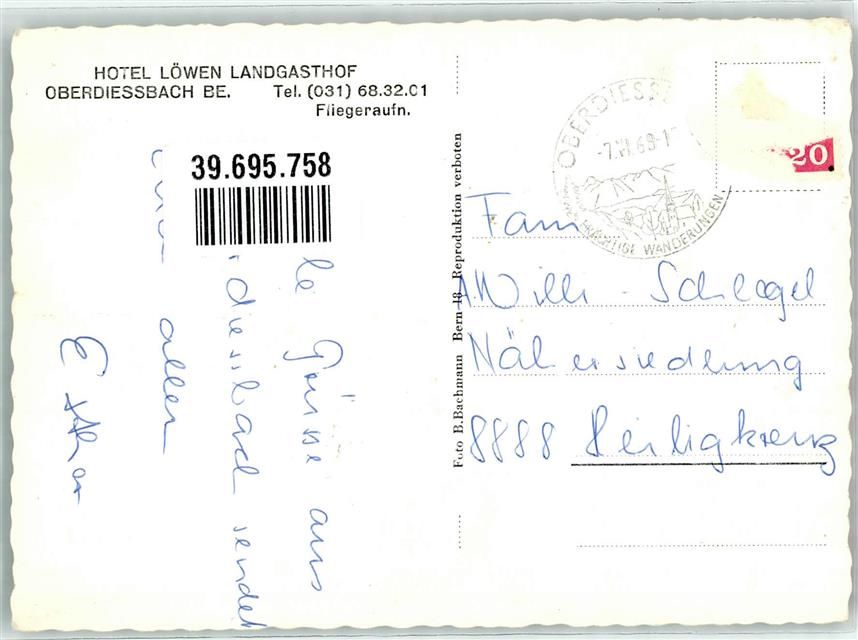 HOTEL LÖWEN LANDGASTHOF
OBERDIESSBACH BE. Tel. (031) 68.32.01
Fliegeraufn.
39.695.758
le Grüsse aus
diessbach sendet
aller
Esther
Foto B.Bachmann Bern 18 Reproduktion verboten
OBERDIESS
PRÄCHTIGE WANDERUNGEN
20
Fam
A. Willi - Schlegel
Nähersiedlung
8888 Heiligkreuz